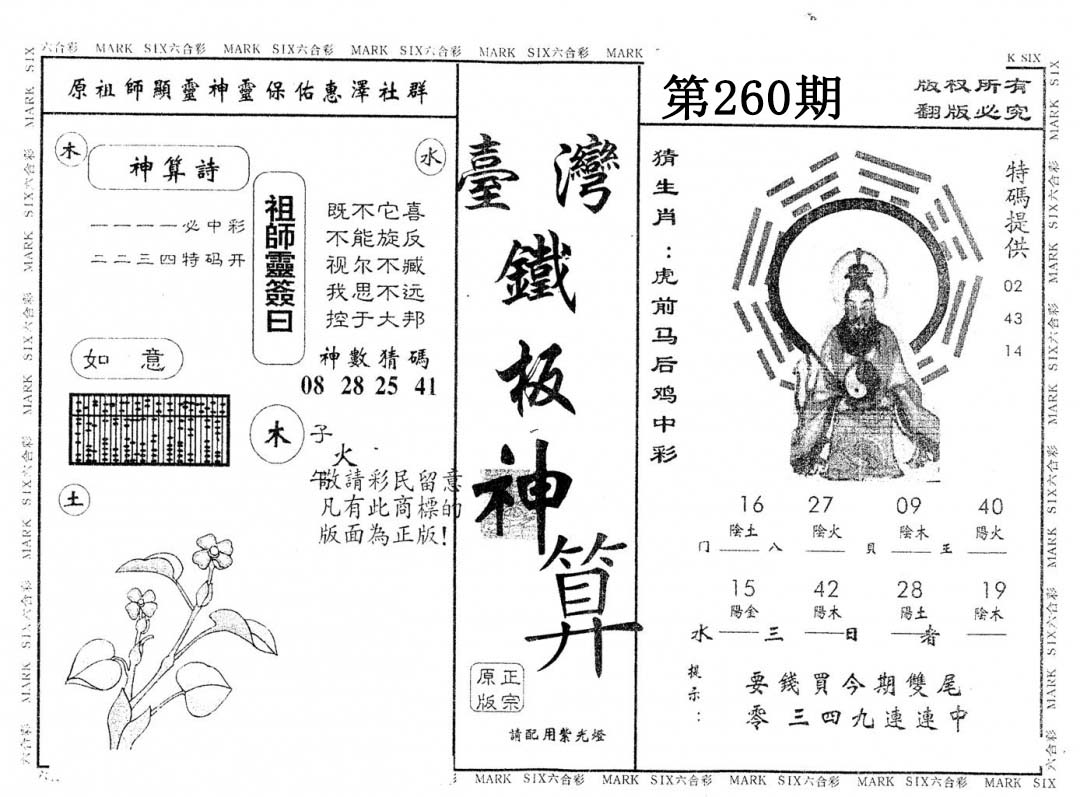 六合彩 MARK SIX六合彩 MARK SIX六合彩 MARK SIX六合彩 MARK SIX六合彩 MARK
K SIX
原祖師顯靈神靈保佑惠澤社群
木
神算詩
水
一一一一必中彩
二二三四特码开
祖師靈簽曰
既不它喜
不能旋反
视尔不臧
我思不远
控于大邦
神數猜碼
08 28 25 41
如意
木
子
火
午
敬請彩民留意
凡有此商標的
版面為正版!
土
臺灣
鐵
板
神
算
正宗
原版
請配用紫光燈
第260期
版权所有
翻版必究
猜生肖:虎前马后鸡中彩
特碼提供
02
43
14
16 27 09 40
陰土 陰火 陰木 陽火
门 八 貝 王
15 42 28 19
陽金 陽木 陽土 陰木
水 三 日 者
提示:
要錢買今期雙尾
零三四九連連中
MARK SIX六合彩 MARK SIX六合彩 MARK SIX六合彩 MARK SIX六合彩 MARK SIX